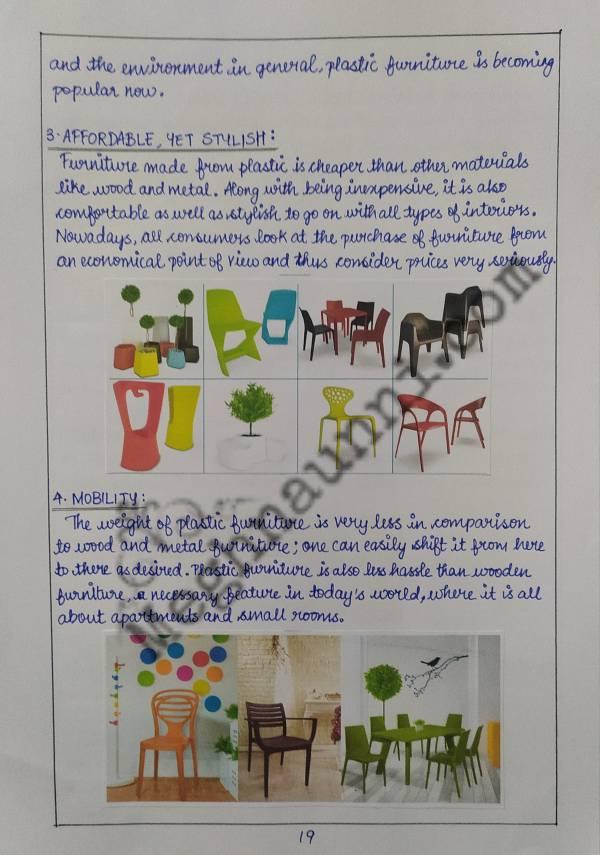 and the environment in general, plastic furniture is becoming
popular now.
3. AFFORDABLE, YET STYLISH:
Furniture made from plastic is cheaper than other materials
like wood and metal. Along with being inexpensive, it is also
comfortable as well as stylish to go on with all types of interiors.
Nowadays, all consumers look at the purchase of furniture from
an economical point of view and thus consider prices very seriously.
4. MOBILITY:
The weight of plastic furniture is very less in comparison
to wood and metal furniture; one can easily shift it from here
to there as desired. Plastic furniture is also less hassle than wooden
furniture, a necessary feature in today's world, where it is all
about apartments and small rooms.
19